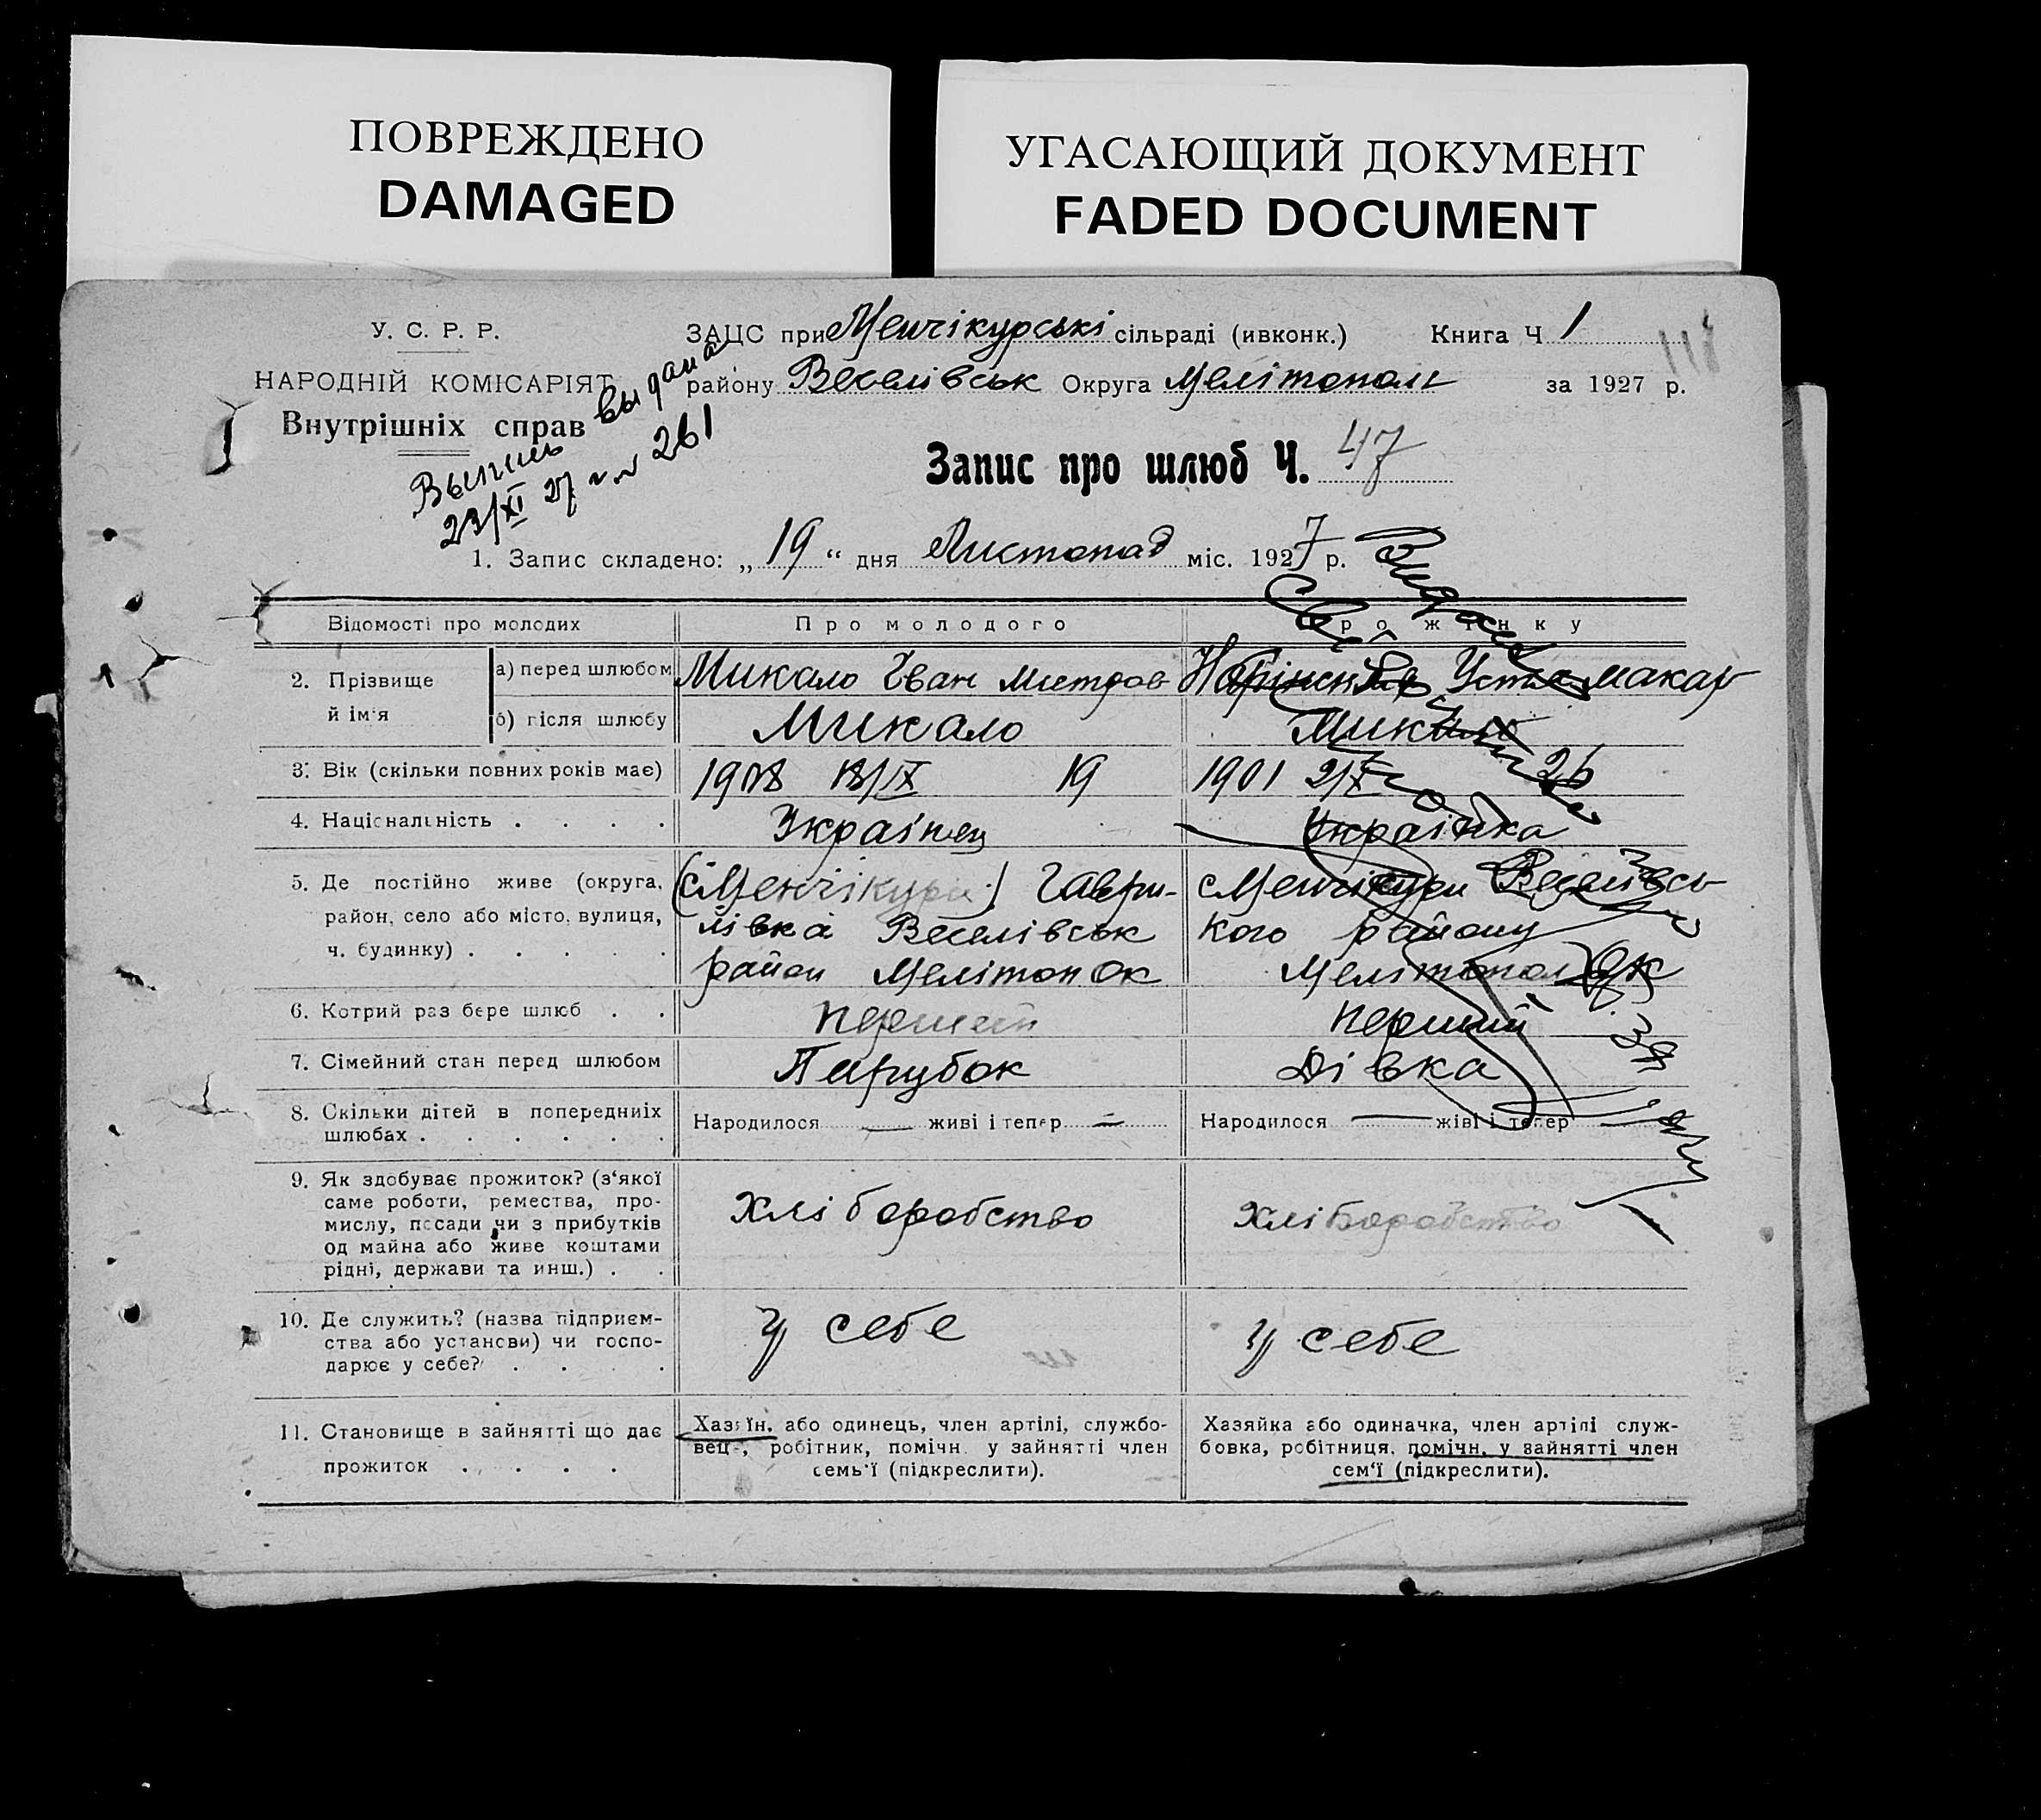 ПОВРЕЖДЕНО
DAMAGED
УГАСАЮЩИЙ ДОКУМЕНТ
FADED DOCUMENT
У. С. Р. Р.
НАРОДНІЙ КОМІСАРІЯТ
Внутрішніх справ
Выпись выдана
23/XI 27 261
ЗАЦС при Менчікурські сільраді (ивконк.) Книга Ч 1
118
району Веселівськ Округа Мелітополь за 1927 р.
Запис про шлюб Ч. 47
1. Запис складено: „ 19 “ дня Листопад міс. 1927 р.
Відомості про молодих
Про молодого
Про жінку
2. Прізвище й ім'я
а) перед шлюбом
Микало Іван
Устя Макар
б) після шлюбу
Микало
Микало
3. Вік (скільки повних років має)
1908 18/IX 19
1901 26
4. Національність . . . .
Українец
Українка
5. Де постійно живе (округа,
район, село або місто, вулиця,
ч. будинку) . . . . .
(с Менчікури) Гаври-
лівка Веселівськ
район Мелітоп Ок
с Менчікури Веселівсь
кого району
Мелітопол Ок
6. Котрий раз бере шлюб . .
первий
перший
7. Сімейний стан перед шлюбом
Парубок
Дівка
8. Скільки дітей в попередниіх
шлюбах . . . . . .
Народилося — живі і тепер —
Народилося — жіві і тепер
9. Як здобуває прожиток? (з‘якої
саме роботи, ремества, про-
мислу, посади чи з прибутків
од майна або живе коштами
рідні, держави та инш.) . .
Хліборобство
Хліборобство
10. Де служить? (назва підприєм-
ства або установи) чи госпо-
дарює у себе? . . . .
У себе
У себе
11. Становище в зайнятті що дає
прожиток . . . .
Хазяїн, або одинець, член артілі, службо-
вець, робітник, помічн. у зайнятті член
семь‘ї (підкреслити).
Хазяйка або одиначка, член артілі служ-
бовка, робітниця, помічн. у зайнятті член
сем‘ї (підкреслити).